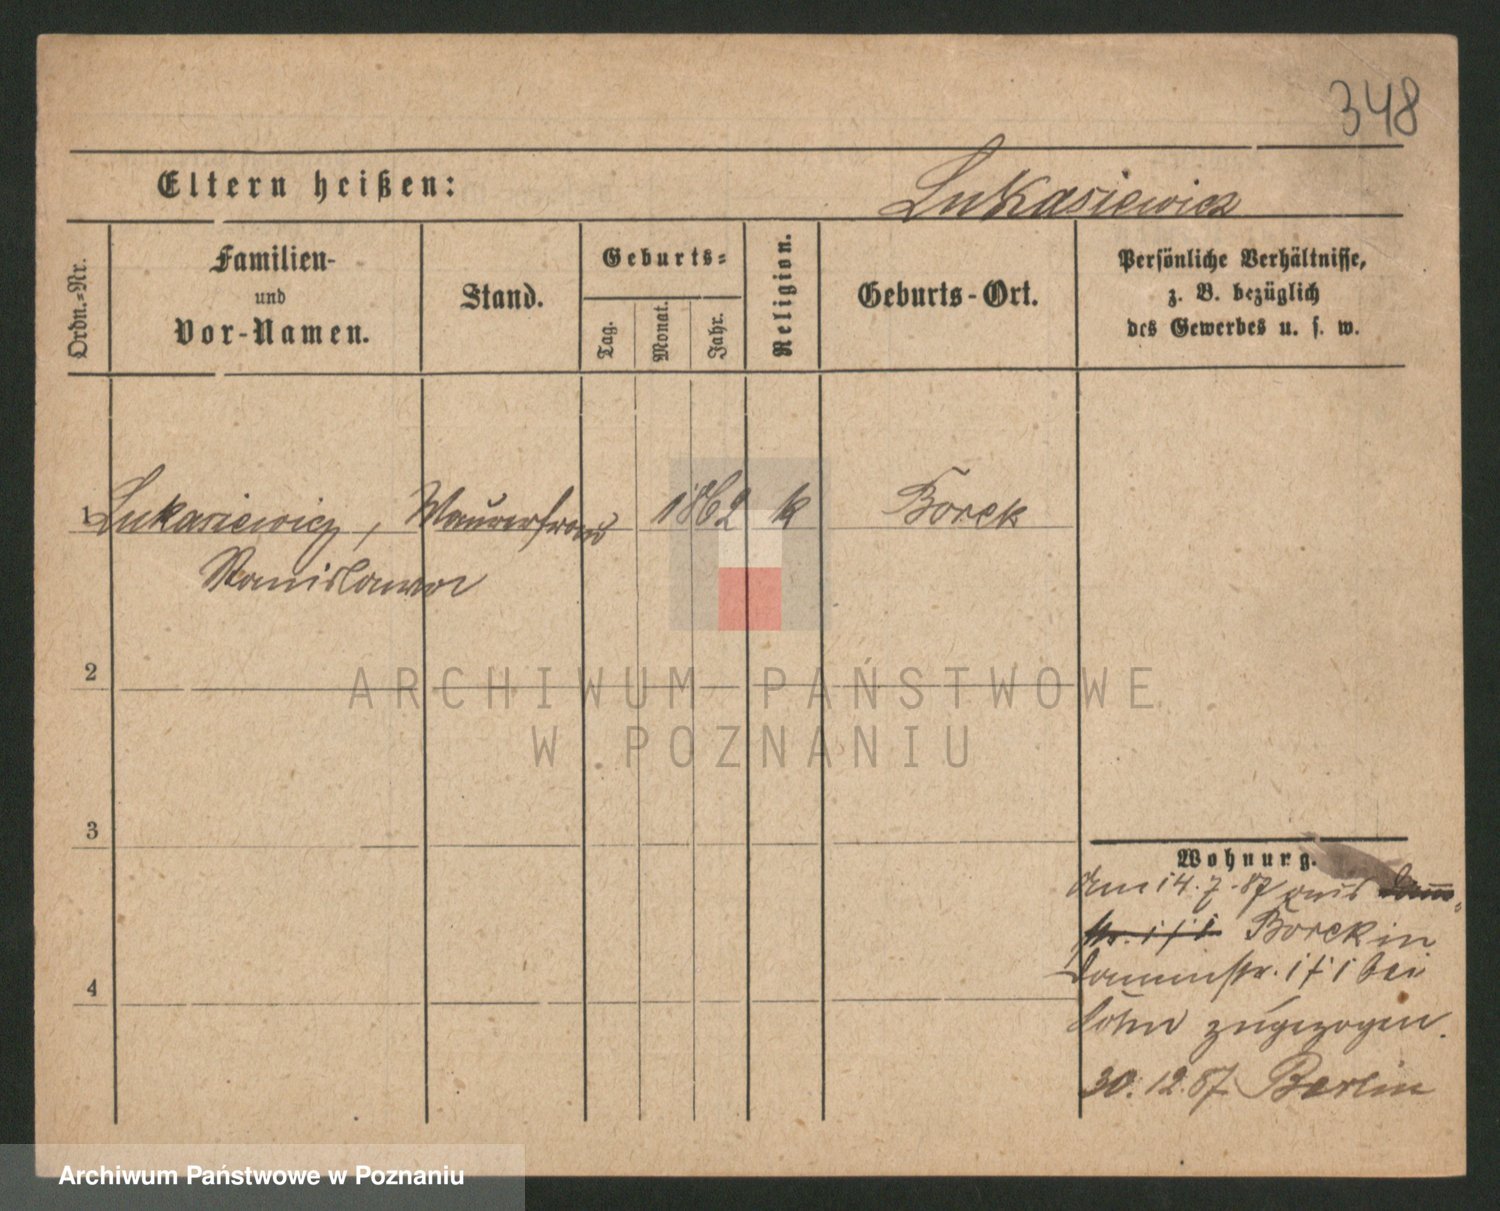 348
Eltern heißen:
Lukasiewicz
Ordn.=Nr.
Familien-
und
Vor-Namen.
Stand.
Geburts=
Tag.
Monat.
Jahr.
Religion.
Geburts-Ort.
Persönliche Verhältnisse,
z. B. bezüglich
des Gewerbes u. s. w.
1 Lukasiewicz, Maurerfrau 1862 k Borek
Stanislawa
2
ARCHIWUM PAŃSTWOWE
W POZNANIU
3
Wohnung.
den 14.7.87 aus
str. 1/1 Borek in
Dammstr. 1/1 bei
zugezogen.
30.12.87 Berlin
4
Archiwum Państwowe w Poznaniu